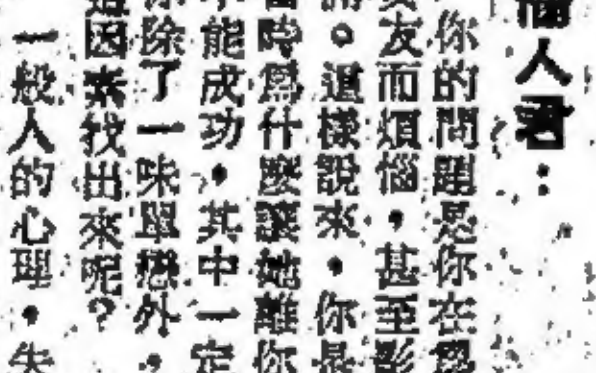 人君：
你的問題是你在
友而煩惱，甚至影
。這樣說來，你是
時爲什麼讓她離你
能成功，其中一定
除了一味單戀外，
因素找出來呢？
一般人的心理，失